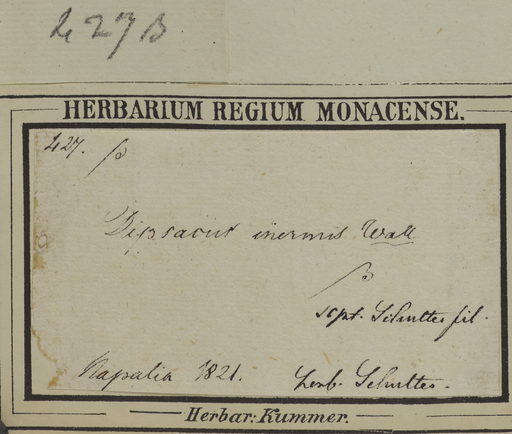 427 β
HERBARIUM REGIUM MONACENSE.
427. β
Dipsacus inermis Wall
β
scpt. Schultes fil.
Napalia 1821.
herb. Schultes.
Herbar: Kummer.